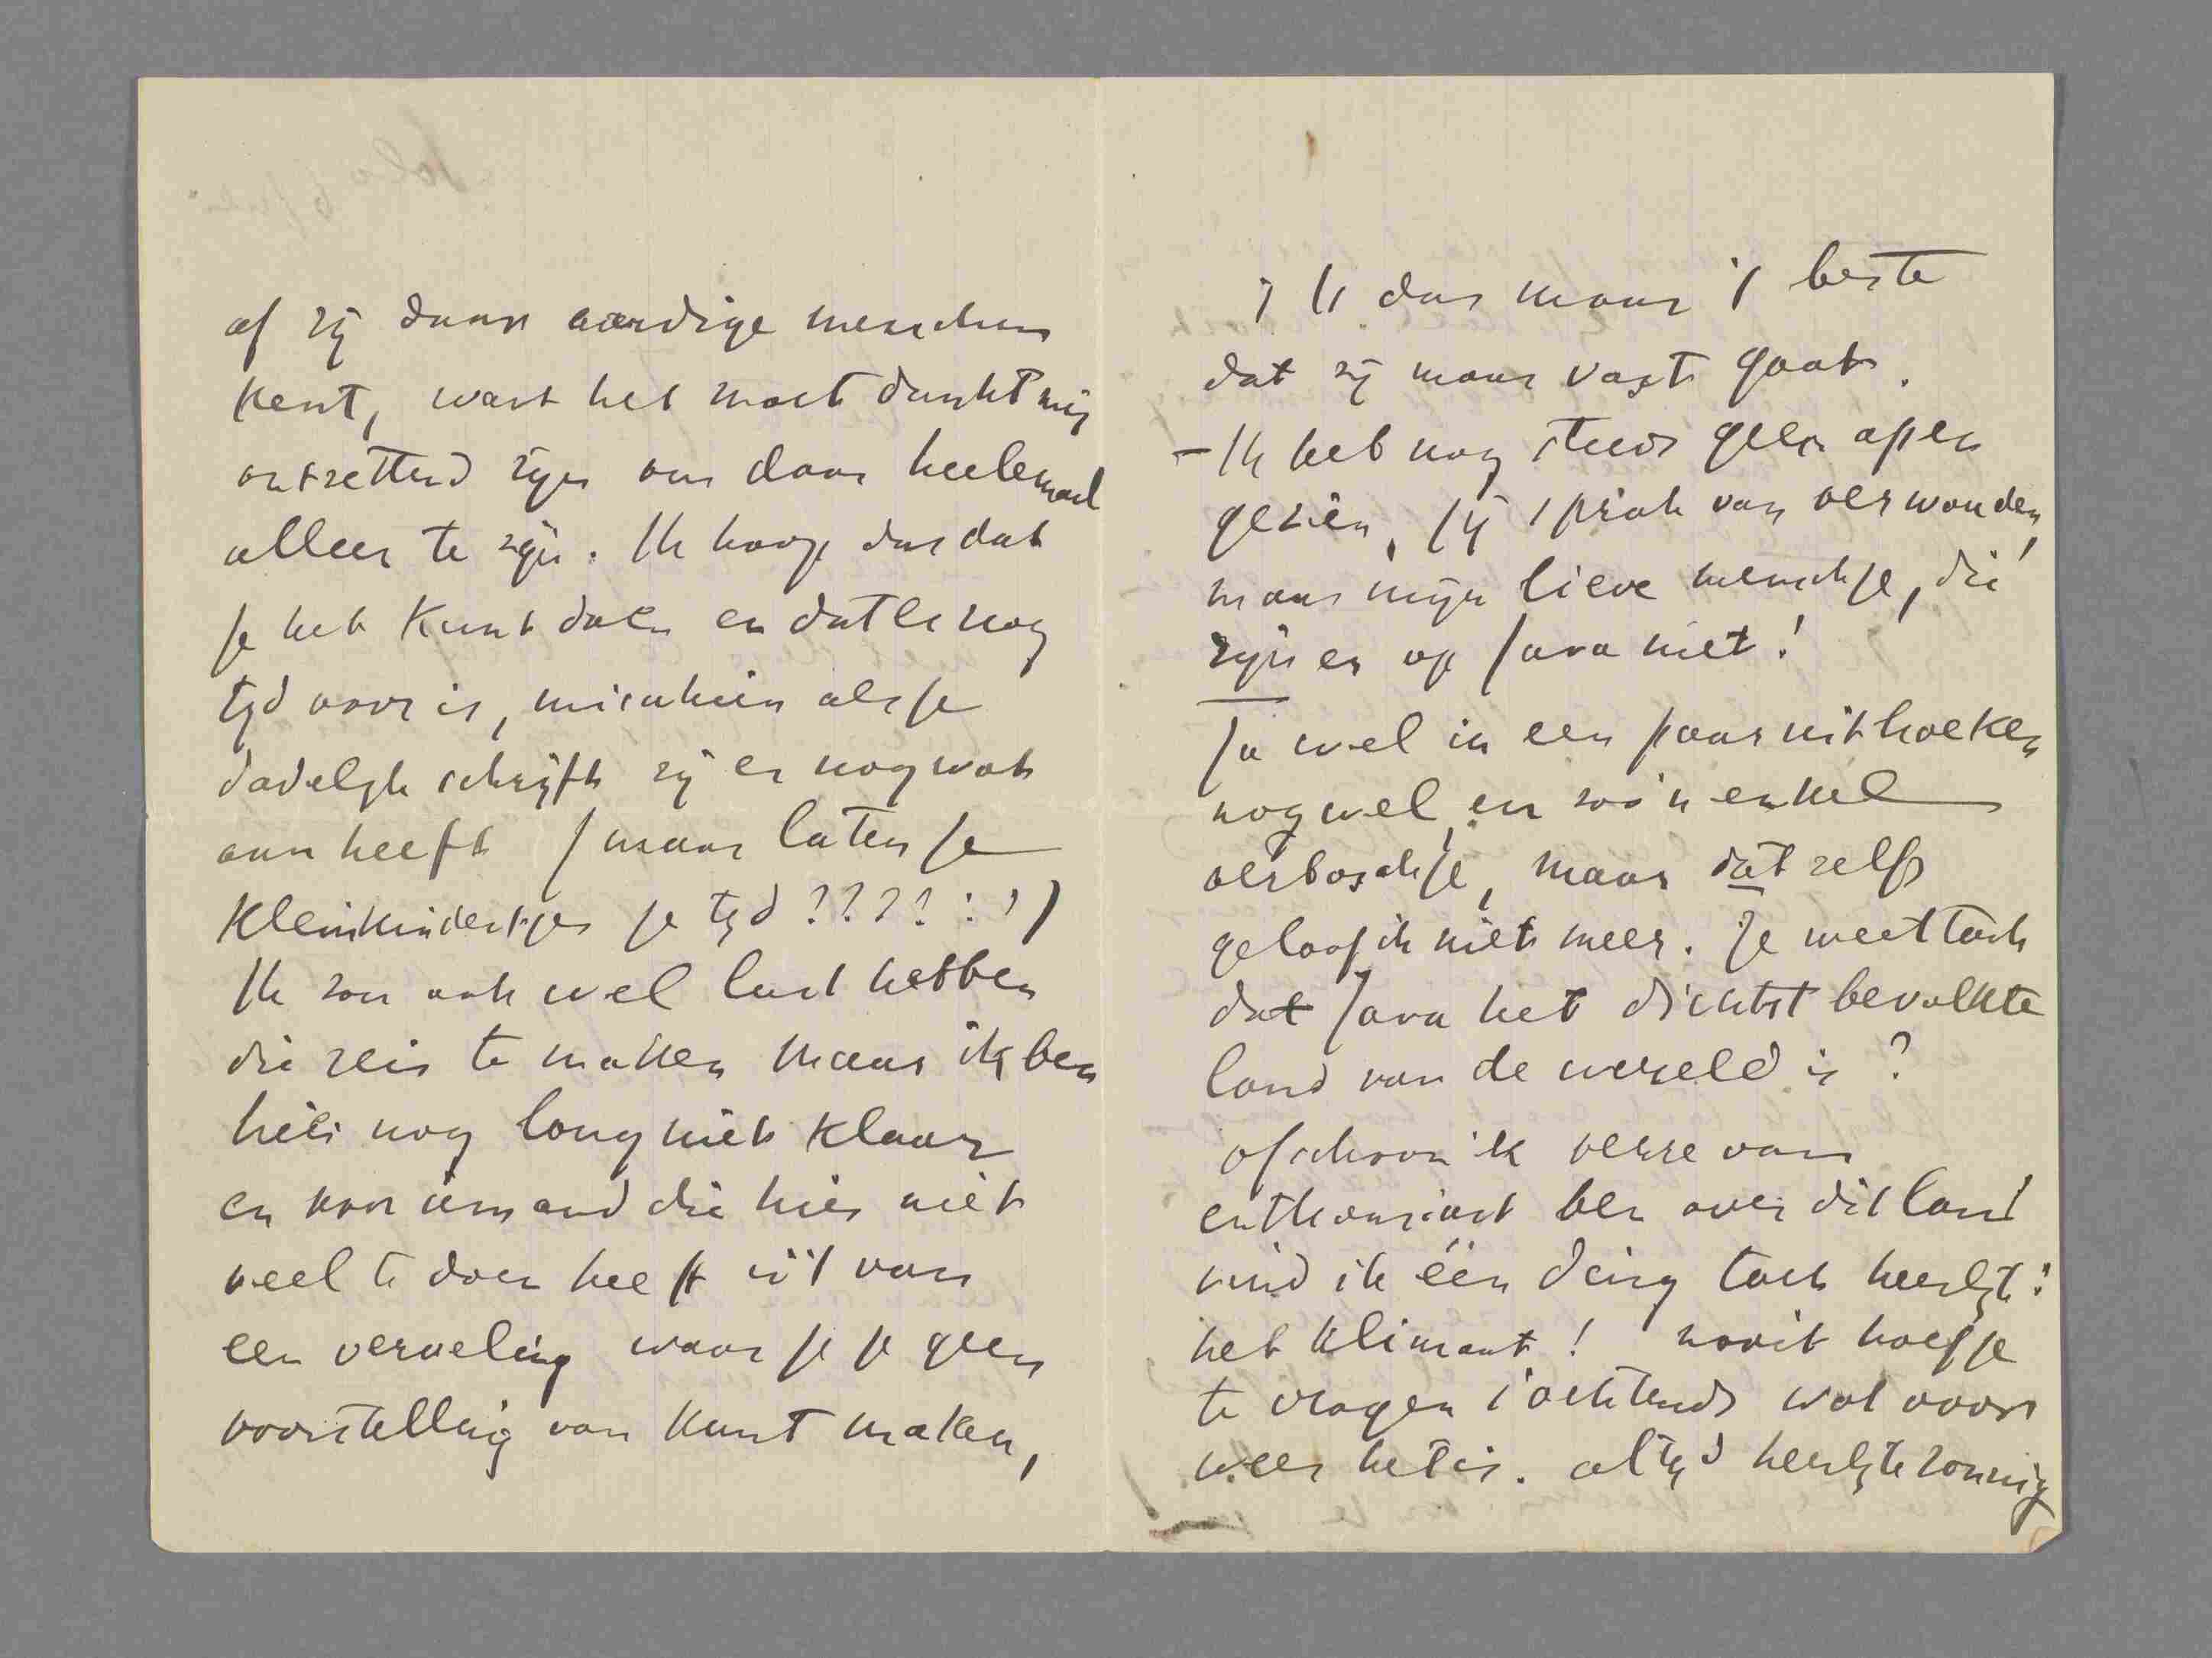 of zij daar aardige menschen
kent, want het moet dunkt mij
ontzettend zijn om daar heelemaal
alleen te zijn. Ik hoop dus dat
je het kunt doen en dat er nog
tijd voor is, misschien als je
dadelijk schrijft zij er nog wat
aan heeft (maar laten je
kleinkindertjes je tijd ????::))
Ik zou ook wel lust hebben
die reis te maken maar ik ben
hier nog lang niet klaar
en voor iemand die hier niet
veel te doen heeft is 't van
een verveling waar je je geen
voorstelling van kunt maken,
't Is dus maar 't beste
dat zij maar vast gaat.
– Ik heb nog steeds geen apen
gezien, jij sprak van oerwouden,
maar mijn lieve menschje, die
zijn er op Java niet!
Ja wel in een paar uithoeken
nog wel, en zoo'n enkel
oerboschje, maar dat zelfs
geloof ik niet meer. Je weet toch
dat Java het dichtst bevolkte
land van de wereld is?
ofschoon ik verre van
enthousiast ben over dit land
vind ik één ding toch heerlijk:
het klimaat! nooit hoef je
te vragen 's ochtends wat voor
weer het is. altijd heerlijk zonnig